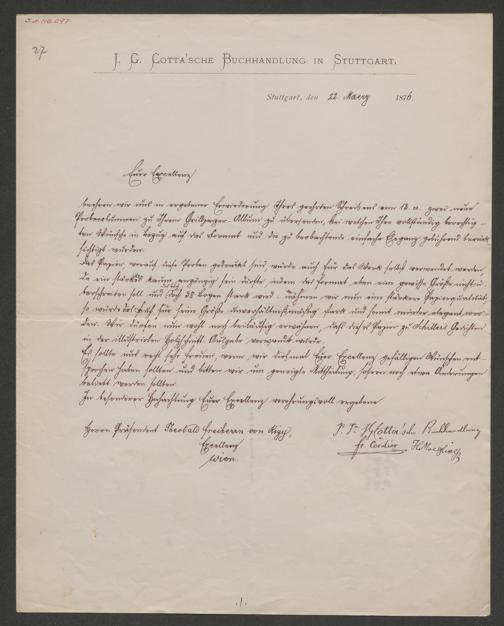 27
J. G. Cotta'sche Buchhandlung in Stuttgart.
Stuttgart, den 22. Maerz 1876.
Euer Excellenz
beehren wir uns in ergebener Erwiederung Ihres geehrten Schreibens vom 13. zwei neue
Probenummern zu Ihrem Grillparzer-Album zu übersenden, bei welchen Ihre vollständig berechtig-
ten Wünsche in Bezug auf das Format und die zu beobachtende einfache Eleganz gebührend berück-
sichtigt wurden.
Das Papier, worauf diese Proben gedruckt sind, würde auch für das Werk selbst verwendet werden,
da ein stärkeres kaum angängig sein dürfte, indem das Format eben eine gewisse Größe nicht ü-
berschreiten soll und das Buch 28 Bogen stark wird. Nähmen wir nun ein stärkeres Papier
so würde das Buch für seine Größe unverhältnißmäßig stark und somit minder elegant wer-
den. Wir dürfen nun wohl noch beiläufig erwähnen, daß dieses Papier zu Schillers Gedichten
in der illustrirten Holzschnitt Ausgabe verwandt wurde.
Es sollte uns recht sehr freuen, wenn wir diesmal Euer Excellenz gefälligen Wünschen ent-
sprochen haben sollten und bitten wir um geneigte Mittheilung, sofern noch etwa Änderungen
beliebt werden sollten.
In besonderer Hochachtung Euer Excellenz verehrungsvoll ergebene
Herrn Präsident Theobald Freiherrn von Rizy,
Excellenz
Wien.
J. G. Cotta'sche Buchhandlung